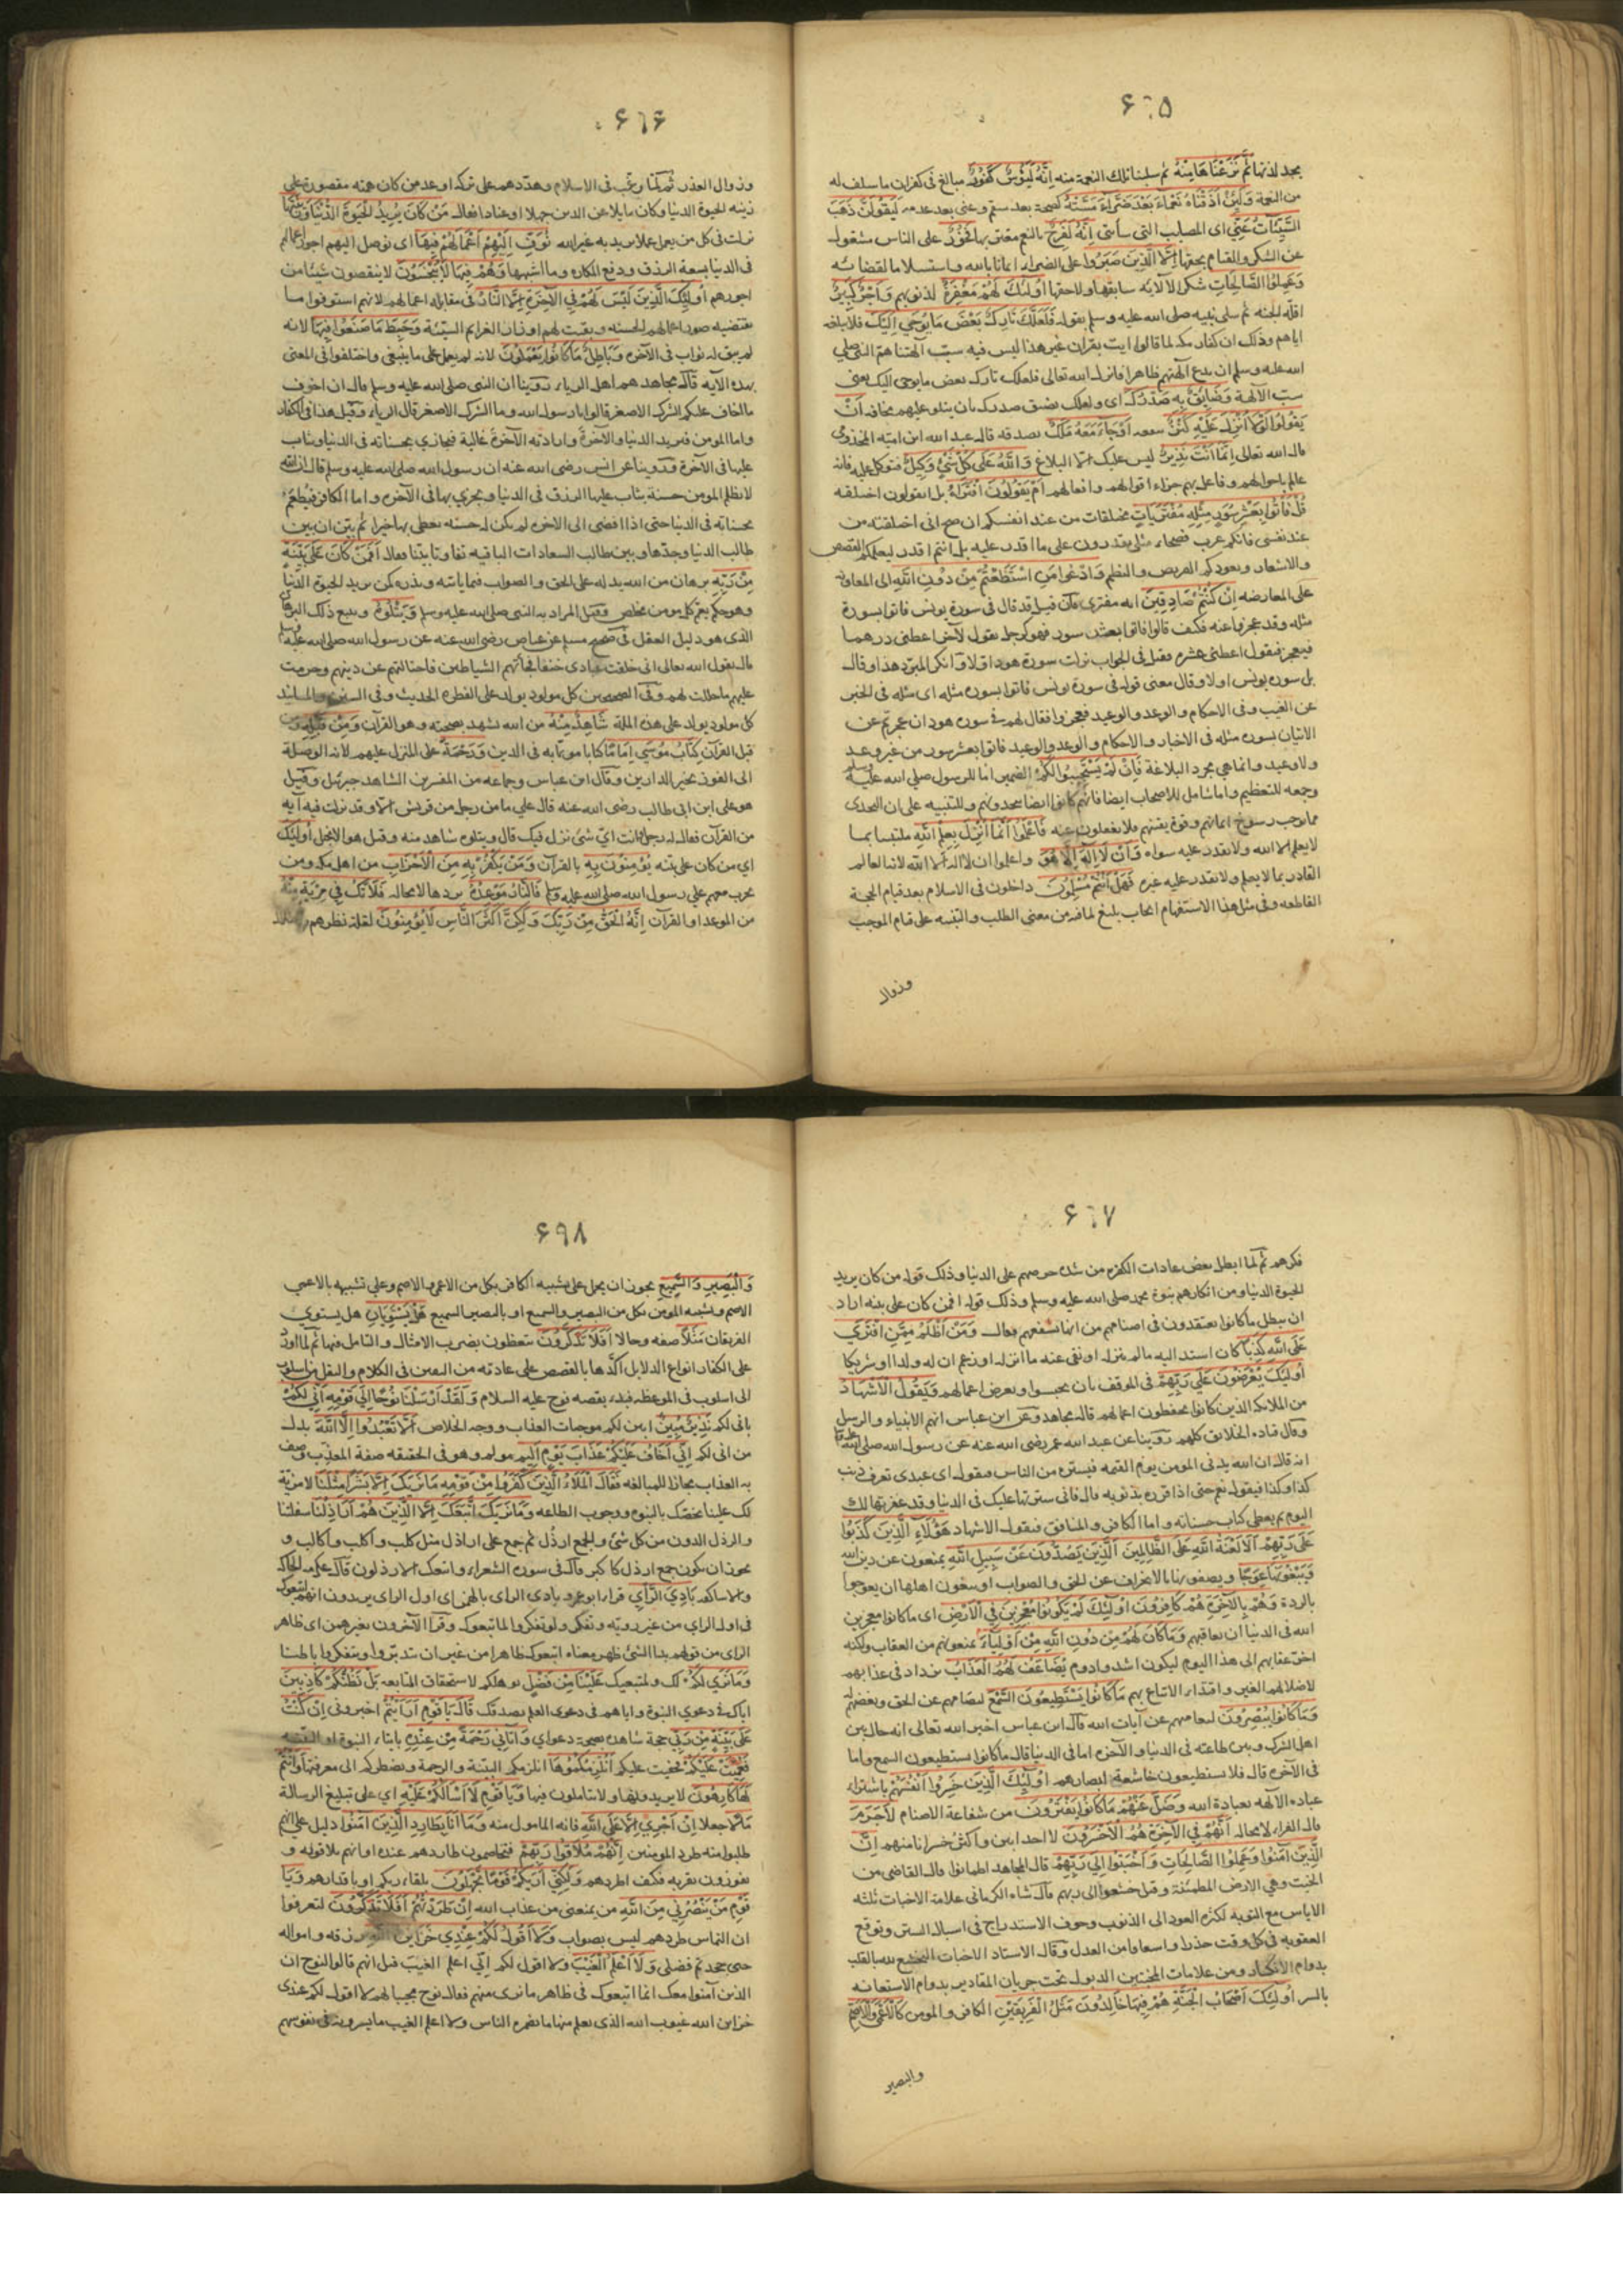 ٦٦٥
يجد لذتها ثُمَّ نَزَعْنَاهَا مِنْهُ ثم سلبنا تلك النعمة منه اِنَّهُ لَيَؤُسٌ كَفُورٌ مبالغ في كفران ما سلف له
من النعمة وَلَئِنْ اَذَقْنَاهُ نَعْمَاءَ بَعْدَ ضَرَّاءَ مَسَّتْهُ كصحة بعد سقم وغنى بعد عدم لَيَقُولَنَّ ذَهَبَ
السَّيِّئَاتُ عَنِّي اى المصايب التى سأتنى اِنَّهُ لَفَرِحٌ بالنعم مغتر بها فَخُورٌ على الناس مشغول
عن الشكر والقيام بحقها اِلَّا الَّذِينَ صَبَرُوا على الضراء ايمانا بالله واستسلاما لقضائه
وَعَمِلُوا الصَّالِحَاتِ شكرا لآلائه سابقها ولاحقها اُولٰئِكَ لَهُمْ مَغْفِرَةٌ لذنوبهم وَاَجْرٌ كَبِيرٌ
اقله الجنة ثم سلى نبيه صلى الله عليه وسلم بقوله فَلَعَلَّكَ تَارِكٌ بَعْضَ مَا يُوحَى اِلَيْكَ فلا تبلغه
اياهم وذلك ان كفار مكة لما قالوا ايت بقران غير هذا ليس فيه سبّ آلهتنا همّ النبى صلى
الله عليه وسلم ان يدع آلهتهم ظاهرا فانزل الله تعالى فلعلك تارك بعض ما يوحى اليك يعنى
سبّ الآلهة وَضَائِقٌ بِهِ صَدْرُكَ اى ولعلك يضيق صدرك بان يتلو عليهم مخافة اَنْ
يَقُولُوا لَوْلَا اُنْزِلَ عَلَيْهِ كَنْزٌ ينفقه اَوْ جَاءَ مَعَهُ مَلَكٌ يصدقه قاله عبد الله ابن امية المخذومى
قال الله تعالى اِنَّمَا اَنْتَ نَذِيرٌ ليس عليك الّا البلاغ وَاللّٰهُ عَلَى كُلِّ شَيْءٍ وَكِيلٌ فتوكل عليه فانه
عالم باحوالهم وفاعل بهم جزاء اقوالهم وافعالهم اَمْ يَقُولُونَ افْتَرَاهُ بل ايقولون اختلقه
قُلْ فَأْتُوا بِعَشْرِ سُوَرٍ مِثْلِهِ مُفْتَرَيَاتٍ مختلقات من عند انفسكم ان صح انى اختلقته من
عند نفسى فانكم عرب فصحاء مثلى تقدرون على ما اقدر عليه بل انتم اقدر لتعلمكم القصص
والاشعار وتعودكم القريض والنظم وَادْعُوا مَنِ اسْتَطَعْتُمْ مِنْ دُونِ اللّٰهِ الى المعاونة
على المعارضة اِنْ كُنْتُمْ صَادِقِينَ انه مفترى فان قيل قد قال فى سورة يونس فاتوا بسورة
مثله وقد عجزوا عنه فكيف قالوا فاتوا بعشر سور فهو كرجل يقول لآخر اعطنى درهما
فيعجز فيقول اعطنى عشره فقيل فى الجواب نزلت سورة هود اوّلا وانكر المبرد هذا وقال
بل سورة يونس اولا وقال معنى قوله فى سورة يونس فاتوا بسوره مثله اى مثله فى الخبر
عن الغيب وفى الاحكام والوعد والوعيد فعجزوا فقال لهم فى سوره هود ان عجزتم عن
الاتيان بسوره مثله فى الاخبار والاحكام والوعد والوعيد فاتوا بعشر سور من غير وعد
ولا وعيد وانما هى مجرد البلاغة فَاِنْ لَمْ يَسْتَجِيبُوا لَكُمْ الضمير اما للرسول صلى الله عليه وسلم
وجمعه للتعظيم واما شامل للاصحاب ايضا فانهم كانوا ايضا يتحدونهم وللتنبيه على ان التحدى
مما يوجب رسوخ ايمانهم وقوة يقينهم فلا يغفلون عنه فَاعْلَمُوا اَنَّمَا اُنْزِلَ بِعِلْمِ اللّٰهِ ملتبسا بما
لا يعلم الا الله ولا يقدر عليه سواه وَاَنْ لَا اِلٰهَ اِلَّا هُوَ واعلموا ان لا اله الا الله لانه العالم
القادر بما لا يعلم ولا يقدر عليه غيره فَهَلْ اَنْتُمْ مُسْلِمُونَ داخلون فى الاسلام بعد قيام الحجة
القاطعه وفى مثل هذا الاستفهام ايجاب بليغ لما فيه من معنى الطلب والتنبيه على قيام الموجب
وزوال
٦٦٦
وزوال العذر ثم لمّا رغّب فى الاسلام وهدّدهم على تركه اوعد من كان همّه مقصورة على
زينه الحيوة الدنيا وكان مايلا عن الدين جهلا او عنادا فقال مَنْ كَانَ يُرِيدُ الْحَيٰوةَ الدُّنْيَا وَزِينَتَهَا
نزلت فى كل من يعمل عملا يريد به غير الله نُوَفِّ اِلَيْهِمْ اَعْمَالَهُمْ فِيهَا اى نوصل اليهم اجور اعمالهم
فى الدنيا بسعة الرزق ودفع المكاره وما اشبهها وَهُمْ فِيهَا لَا يُبْخَسُونَ لا ينقصون شيئا من
اجورهم اُولٰئِكَ الَّذِينَ لَيْسَ لَهُمْ فِي الْآخِرَةِ اِلَّا النَّارُ فى مقابلة اعمالهم لانهم استوفوا ما
يقتضيه صور اعمالهم الحسنه وبقيت لهم اوزار الغرايم السيّئة وَحَبِطَ مَا صَنَعُوا فِيهَا لانه
لم يبق له ثواب فى الآخرة وَبَاطِلٌ مَا كَانُوا يَعْمَلُونَ لانه لم يعمل على ما ينبغى واختلفوا فى المعنى
بهذه الآية قال مجاهد هم اهل الرياء روّينا ان النبى صلى الله عليه وسلم قال ان اخوف
ما اخاف عليكم الشرك الاصغر قالوا يا رسول الله وما الشرك الاصغر قال الرياء وقيل هذا فى الكفار
واما المومن فيريد الدنيا والآخرة وارادته الآخرة غالبة فيجازى بحسناته فى الدنيا ويثاب
عليها فى الآخرة وروينا عن انس رضى الله عنه ان رسول الله صلى الله عليه وسلم قال ان الله
لا يظلم المومن حسنة يثاب عليها الرزق فى الدنيا ويجزى بها فى الآخره واما الكافر فيُطعَم
بحسناته فى الدنيا حتى اذا افضى الى الآخره لم يكن له حسنه يعطى بها خيرا ثم بيّن ان بين
طالب الدنيا وحدها وبين طالب السعادات الباقيه تفاوتا بيّنا فقال اَفَمَنْ كَانَ عَلَى بَيِّنَةٍ
مِنْ رَبِّهِ برهان من الله يدله على الحق والصواب فيما ياتيه ويذره كمن يريد الحيوة الدنيا
وهو حكم يعمّ كل مومن مخلص وقيل المراد به النبى صلى الله عليه وسلم وَيَتْلُوهُ ويتبع ذلك البرهان
الذى هو دليل العقل فى صحيح مسلم عن عياض رضى الله عنه عن رسول الله صلى الله عليه وسلم
قال يقول الله تعالى انى خلقت عبادى حنفا فجأتهم الشياطين فاجتالتهم عن دينهم وحرمت
عليهم ما حللت لهم وفى الصحيحين كل مولود يولد على الفطرة الحديث وفى السنن والمسانيد
كل مولود يولد على هذه الملة شَاهِدٌ مِنْهُ من الله يشهد بصحته وهو القرآن وَمِنْ قَبْلِهِ ومن
قبل القرآن كِتَابُ مُوسَى اِمَامًا كتابا موتمّا به فى الدين وَرَحْمَةً على المنزل عليهم لانه الوصلة
الى الفوز بخير الدارين وقال ابن عباس وجماعه من المفسرين الشاهد جبرئيل وقيل
هو على ابن ابى طالب رضى الله عنه قال على ما من رجل من قريش الّا وقد نزلت فيه آيه
من القرآن فقال له رجل فانت اىّ شئ نزل فيك قال ويتلوه شاهد منه وقيل هو الانجيل اُولٰئِكَ
اى من كان على بيّنه يُؤْمِنُونَ بِهِ بالقرآن وَمَنْ يَكْفُرْ بِهِ مِنَ الْاَحْزَابِ من اهل مكه ومن
تحزب معهم على رسول الله صلى الله عليه وسلم فَالنَّارُ مَوْعِدُهُ يردها لا محاله فَلَا تَكُ فِي مِرْيَةٍ مِنْهُ
من الموعد او القرآن اِنَّهُ الْحَقُّ مِنْ رَبِّكَ وَلٰكِنَّ اَكْثَرَ النَّاسِ لَا يُؤْمِنُونَ لقلة نظرهم
٦٦٧
فكرهم ثم لمّا ابطل بعض عادات الكفره من شدة حرصهم على الدنيا وذلك قوله من كان يريد
الحيوة الدنيا ومن انكارهم نبوة محمد صلى الله عليه وسلم وذلك قوله افمن كان على بينه اراد
ان يبطل ما كانوا يعتقدون فى اصنامهم من انها تشفعهم فقال وَمَنْ اَظْلَمُ مِمَّنِ افْتَرَى
عَلَى اللّٰهِ كَذِبًا كان اسند اليه مالم ينزله او نفى عنه ما انزله او زعم ان له ولدا او شريكا
اُولٰئِكَ يُعْرَضُونَ عَلَى رَبِّهِمْ فى الموقف بان يحبسوا ويعرض اعمالهم وَيَقُولُ الْاَشْهَادُ
من الملائكة الذين كانوا يحفظون اعمالهم قاله مجاهد وعن ابن عباس انهم الانبياء والرسل
وقال قتاده الخلائق كلهم روّينا عن عبد الله عمر رضى الله عنه عن رسول الله صلى الله عليه وسلم
انه قال ان الله يدنى المومن يوم القيمه فيستره من الناس فيقول اى عبدى تعرف ذنب
كذا وكذا فيقول نعم حتى اذا قرره بذنوبه قال فانى سترتها عليك فى الدنيا وقد غفرتها لك
اليوم ثم يعطى كتاب حسناته واما الكافر والمنافق فيقول الاشهاد هٰؤُلَاءِ الَّذِينَ كَذَبُوا
عَلَى رَبِّهِمْ اَلَا لَعْنَةُ اللّٰهِ عَلَى الظَّالِمِينَ اَلَّذِينَ يَصُدُّونَ عَنْ سَبِيلِ اللّٰهِ يمنعون عن دين الله
وَيَبْغُونَهَا عِوَجًا ويصفونها بالانحراف عن الحق والصواب او يبغون اهلها ان يعوجوا
بالردة وَهُمْ بِالْآخِرَةِ هُمْ كَافِرُونَ اُولٰئِكَ لَمْ يَكُونُوا مُعْجِزِينَ فِي الْاَرْضِ اى ما كانوا معجزين
الله فى الدنيا ان يعاقبهم وَمَا كَانَ لَهُمْ مِنْ دُونِ اللّٰهِ مِنْ اَوْلِيَاءَ يمنعونهم من العقاب ولكنه
اخّر عقابهم الى هذا اليوم ليكون اشد وادوم يُضَاعَفُ لَهُمُ الْعَذَابُ يزداد فى عذابهم
لاضلالهم الغير واقتداء الاتباع بهم مَا كَانُوا يَسْتَطِيعُونَ السَّمْعَ لتصامهم عن الحق وبغضهم له
وَمَا كَانُوا يُبْصِرُونَ لتعاميهم عن آيات الله قال ابن عباس اخبر الله تعالى انه حال بين
اهل الشرك وبين طاعته فى الدنيا والآخره اما فى الدنيا قال ما كانوا يستطيعون السمع واما
فى الآخره قال فلا يستطيعون خاشعة ابصارهم اُولٰئِكَ الَّذِينَ خَسِرُوا اَنْفُسَهُمْ باشتراء
عبادة الآلهه بعبادة الله وَضَلَّ عَنْهُمْ مَا كَانُوا يَفْتَرُونَ من شفاعة الاصنام لَاجَرَمَ
قال الفراء لا محاله اَنَّهُمْ فِي الْآخِرَةِ هُمُ الْاَخْسَرُونَ لا احد ابين واكثر خسرانا منهم اِنَّ
الَّذِينَ آمَنُوا وَعَمِلُوا الصَّالِحَاتِ وَاَخْبَتُوا اِلَى رَبِّهِمْ قال المجاهد اطمانوا قال القاضى من
الخبت وهى الارض المطمئنة وقيل خشعوا الى ربهم قال شاه الكرمانى علامة الاخبات ثلثه
الاياس مع التوبه لكثرة العود الى الذنوب وخوف الاستدراج فى اسبال الستر وتوقع
العقوبه فى كل وقت حذرا واشفاقا من العدل وقال الاستاذ الاخبات التخشع لله بالقلب
بدوام الانكسار ومن علامات المخبتين الذبول تحت جريان المقادير بدوام الاستعانه
بالسر اُولٰئِكَ اَصْحَابُ الْجَنَّةِ هُمْ فِيهَا خَالِدُونَ مَثَلُ الْفَرِيقَيْنِ الكافر والمومن كَالْاَعْمَى وَالْاَصَمِّ
والبصير
٦٩٨
وَالْبَصِيرِ وَالسَّمِيعِ يجوز ان يحمل على تشبيه الكافر بكل من الاعمى والاصم وعلى تشبيهه بالاعمى
الاصم وتشبيه المومن بكل من البصير والسميع او بالبصير السميع هَلْ يَسْتَوِيَانِ هل يستوى
الفريقان مَثَلًا صفه وحالا اَفَلَا تَذَكَّرُونَ تتعظون بضرب الامثال والتامل فيها ثم لما اورد
على الكفار انواع الدلايل اكّدها بالقصص على عادته من التفنن فى الكلام والنقل من اسلوب
الى اسلوب فى الموعظه فبدء بقصه نوح عليه السلام وَلَقَدْ اَرْسَلْنَا نُوحًا اِلَى قَوْمِهِ اَنِّي لَكُمْ
بانى لكم نَذِيرٌ مُبِينٌ ابين لكم موجبات العذاب ووجه الخلاص اَلَّا تَعْبُدُوا اِلَّا اللّٰهَ بدل
من انى لكم اِنِّي اَخَافُ عَلَيْكُمْ عَذَابَ يَوْمٍ اَلِيمٍ مولم وهو فى الحقيقه صفة المعذب وصف
به العذاب مجازا للمبالغه فَقَالَ الْمَلَاُ الَّذِينَ كَفَرُوا مِنْ قَوْمِهِ مَا نَرٰيكَ اِلَّا بَشَرًا مِثْلَنَا لا مزيّة
لك علينا تخصّك بالنبوه ووجوب الطاعه وَمَا نَرٰيكَ اتَّبَعَكَ اِلَّا الَّذِينَ هُمْ اَرَاذِلُنَا سفلتنا
والرذل الدون من كل شئ والجمع ارذُل ثم جمع على اراذل مثل كلب واكلب واكالب و
يجوز ان يكون جمع ارذل كاكبر قال فى سورة الشعراء واتبعك الارذلون قال عكرمه الحاكة
والاساكفه بَادِيَ الرَّأْيِ قراء ابو عمرو بادئ الراى بالهمز اى اول الراى يريدون انهم اتبعوك
فى اول الراى من غير رويّه وتفكّر ولو تفكروا لما تبعوك وقرأ الآخرون بغير همز اى ظاهر
الراى من قولهم بدا الشئ ظهر معناه اتبعوك ظاهرا من غير ان تدبّروا ويتفكروا باطنا
وَمَا نَرَى لَكُمْ لك ولمتبعيك عَلَيْنَا مِنْ فَضْلٍ يوهلكم لاستحقاق المتابعه بَلْ نَظُنُّكُمْ كَاذِبِينَ
اياك فى دعوى النبوة واياهم فى دعوى العلم بصدقك قَالَ يَا قَوْمِ اَرَاَيْتُمْ اخبرونى اِنْ كُنْتُ
عَلَى بَيِّنَةٍ مِنْ رَبِّي حجة شاهده بصحة دعواى وَآتَانِي رَحْمَةً مِنْ عِنْدِهِ بايتاء النبوة او البيّنه
فَعُمِّيَتْ عَلَيْكُمْ فخفيت عليكم اَنُلْزِمُكُمُوهَا انلزمكم البيّنة والرحمة ونضطركم الى معرفتها وَاَنْتُمْ
لَهَا كَارِهُونَ لا يريدونها ولا تتاملون فيها وَيَا قَوْمِ لَا اَسْاَلُكُمْ عَلَيْهِ اى على تبليغ الرسالة
مَالًا جعلا اِنْ اَجْرِيَ اِلَّا عَلَى اللّٰهِ فانه المامول منه وَمَا اَنَا بِطَارِدِ الَّذِينَ آمَنُوا دليل على انهم
طلبوا منه طرد المومنين اِنَّهُمْ مُلَاقُوا رَبِّهِمْ فيخاصمون طاردهم عنده او انهم يلاقونه و
يفوزون بقربه فكيف اطردهم وَلٰكِنِّي اَرٰيكُمْ قَوْمًا تَجْهَلُونَ بلقاء ربكم او باقدارهم وَيَا
قَوْمِ مَنْ يَنْصُرُنِي مِنَ اللّٰهِ من يمنعنى من عذاب الله اِنْ طَرَدْتُهُمْ اَفَلَا تَذَكَّرُونَ لتعرفوا
ان التماس طردهم ليس بصواب وَلَا اَقُولُ لَكُمْ عِنْدِي خَزَائِنُ اللّٰهِ رزقه وامواله
حتى جحدتم فضلى وَلَا اَعْلَمُ الْغَيْبَ ولا اقول لكم انّى اعلم الغيب قيل انهم قالوا لنوح ان
الذين آمنوا معك انما اتبعوك فى ظاهر ما نرى منهم فقال نوح مجيبا لهم لا اقول لكم عندى
خزاين الله غيوب الله الذى يعلم منها ما يضمره الناس ولا اعلم الغيب ما يسرونه فى نفوسهم